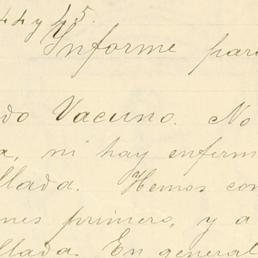 44 y 45.
Informe para
do Vacuno. No
a, ni hay enferm
llada. Hemos con
nes primero, y a
llada. En general